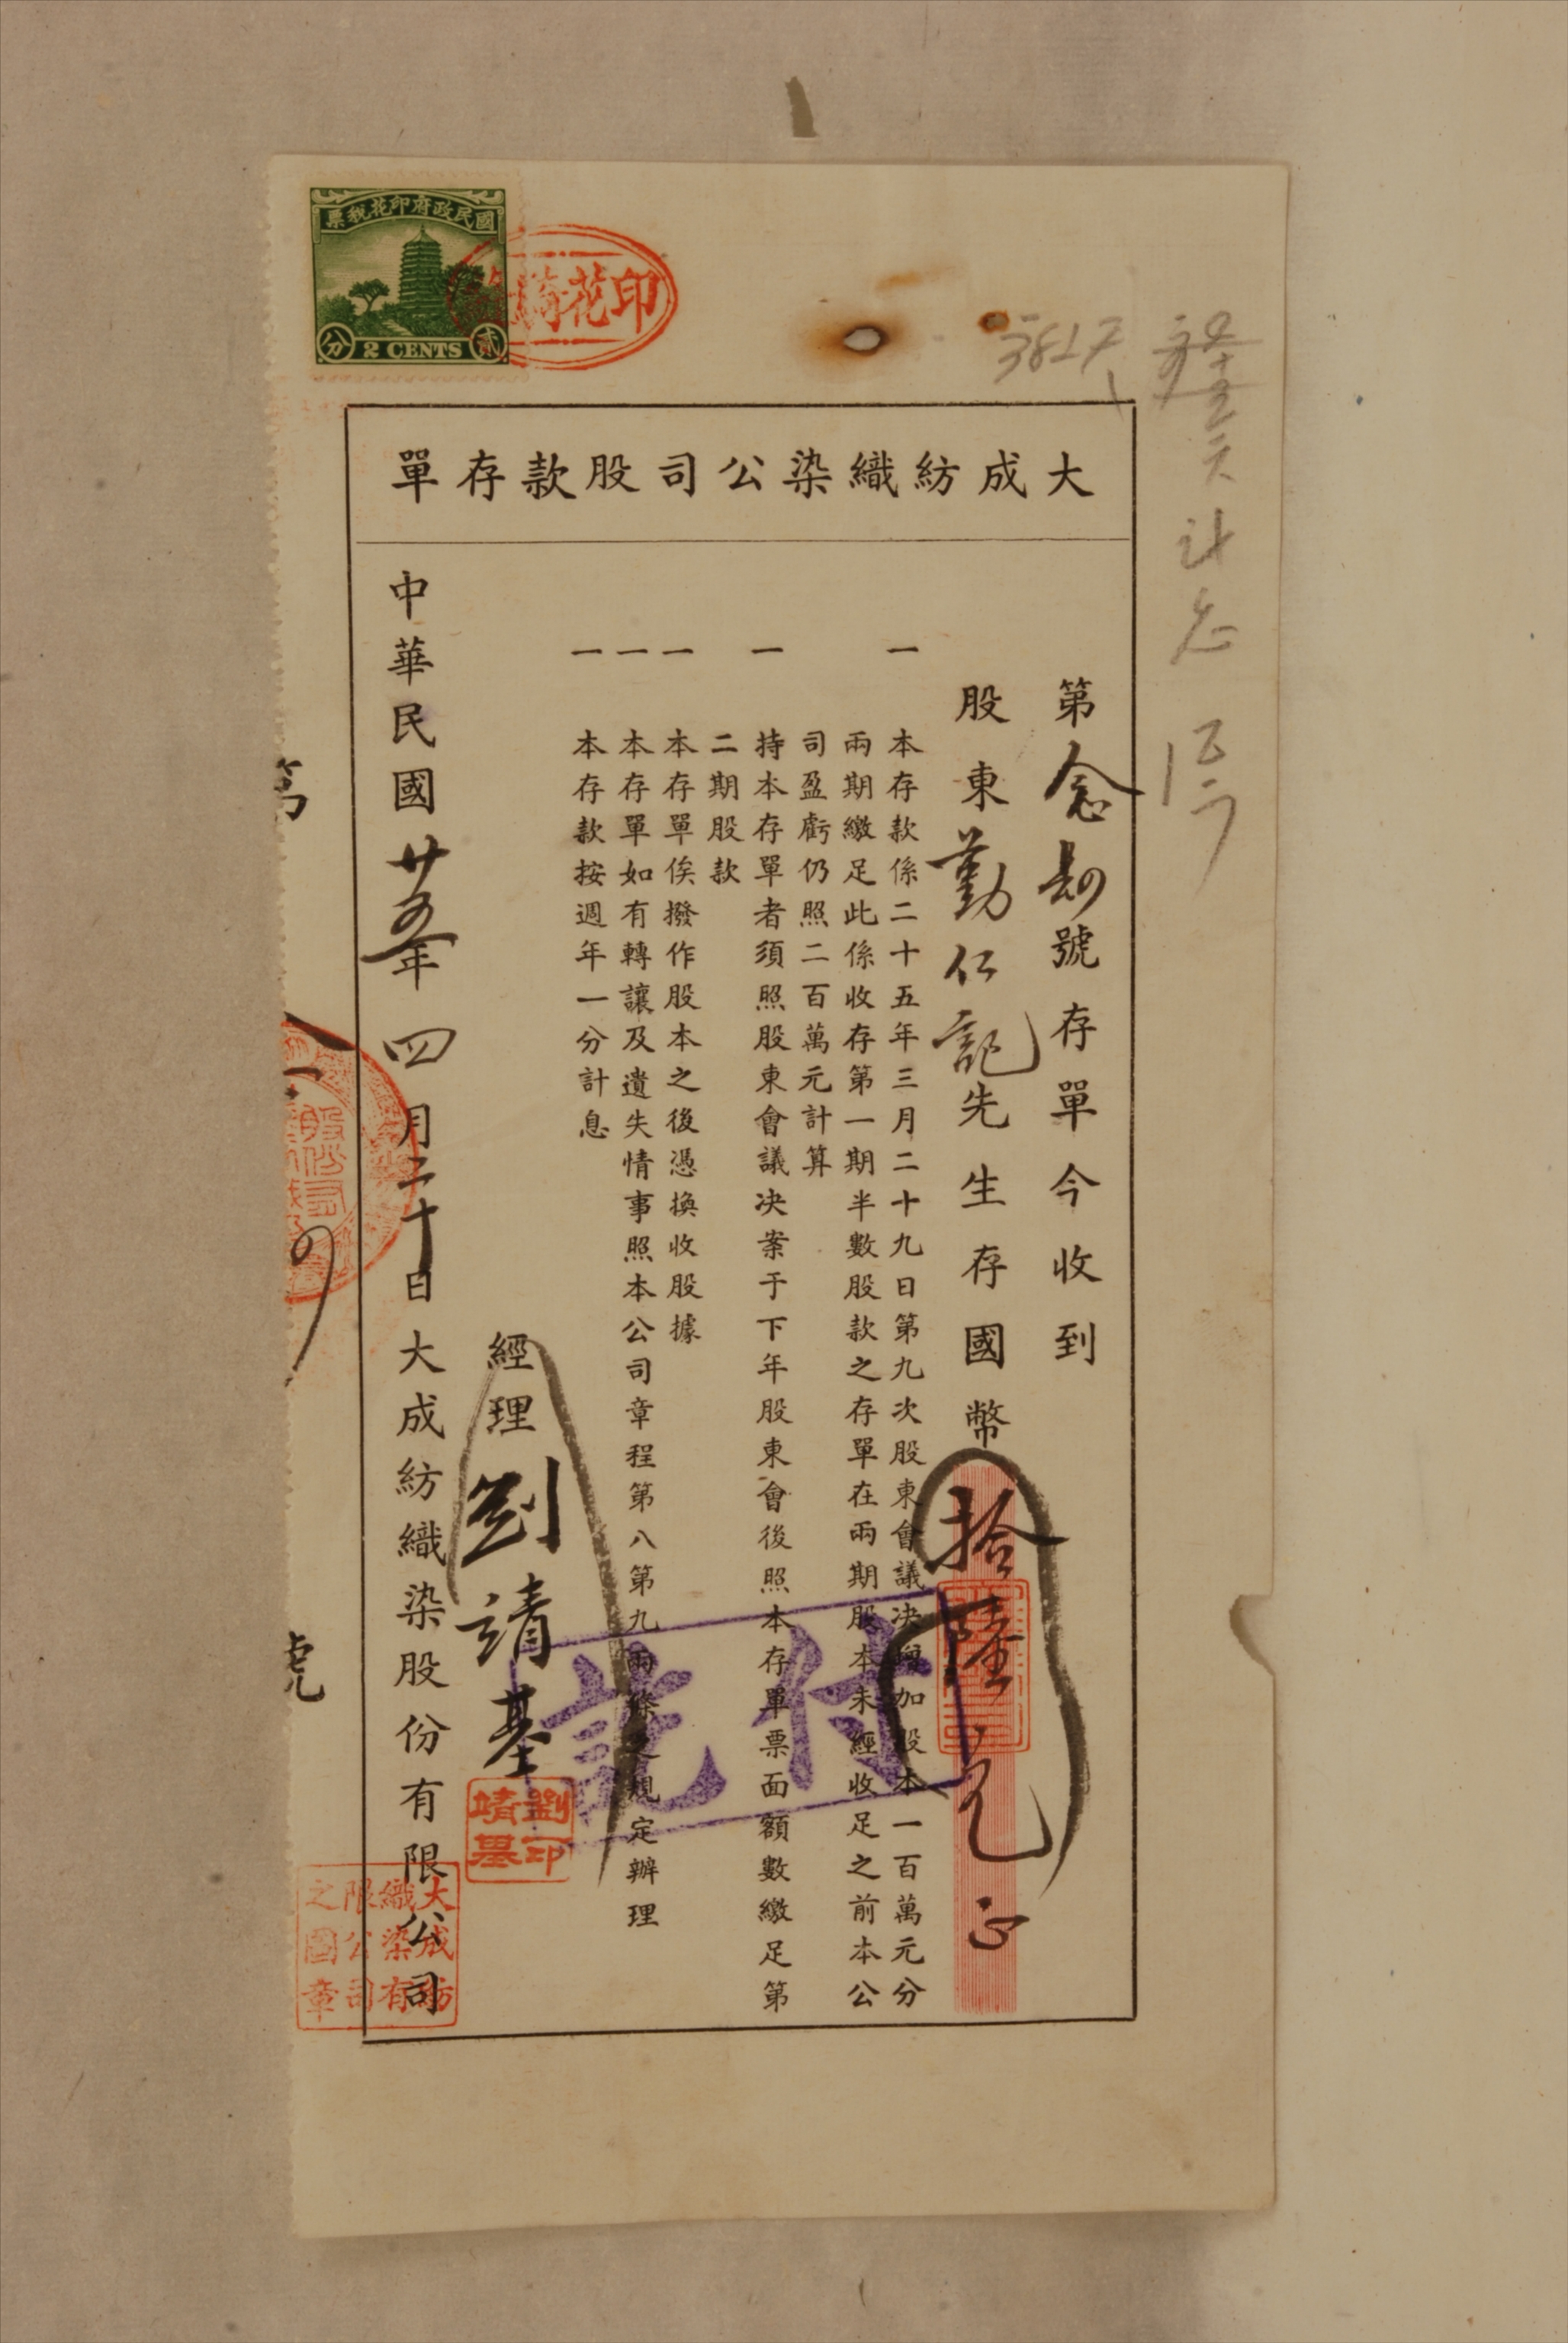 國民政府印花稅票
分 2 CENTS 貳
印花
大成紡織染公司股款存單
第念 號存單今收到
股東勤仁記先生存國幣拾陸元正
一 本存款係二十五年三月二十九日第九次股東會議決增加股本一百萬元分
兩期繳足此係收存第一期半數股款之存單在兩期股本未經收足之前本公
司盈虧仍照二百萬元計算
一 持本存單者須照股東會議决案于下年股東會後照本存單票面額數繳足第
二期股款
一 本存單俟撥作股本之後憑換收股據
一 本存單如有轉讓及遺失情事照本公司章程第八第九兩條之規定辦理
一 本存款按週年一分計息
經理 劉靖基
劉印靖基
付訖
中華民國廿五年四月三十日大成紡織染股份有限公司
大成紡織染有限公司之圖章
號